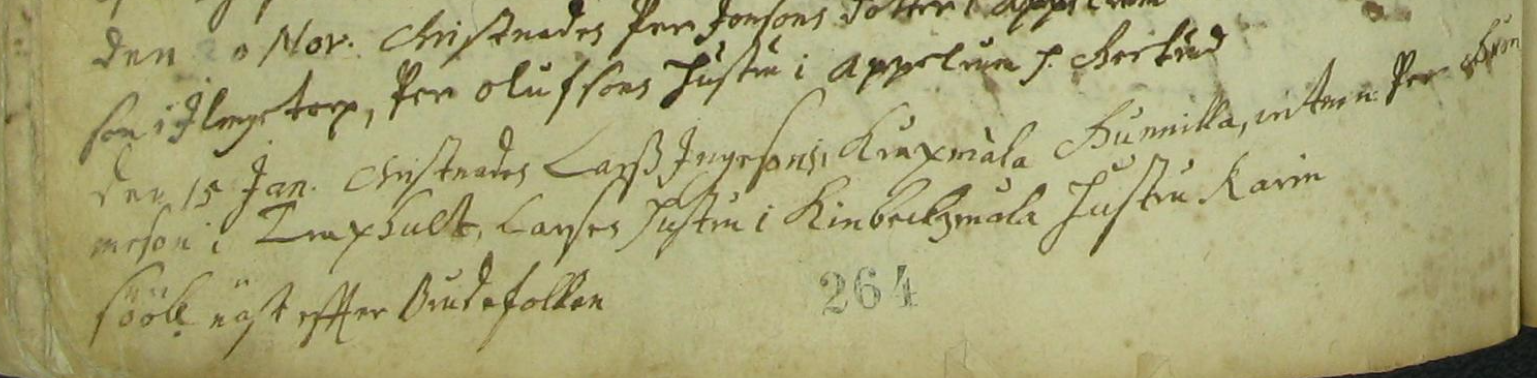 den 20 Nov. Christnades Per Jonsons dotter i Appelrum
son i Ilingetorp, Per Olufsons Hustru i Appelrum h. Gertrud
den 15 Jan. Christnades Larß Ingesons i Kraxmåla Gunnilla, witnen Per
meson i hult, Larses Hustru i måla Hustru Karin
söök näst effter Brudefolken
264